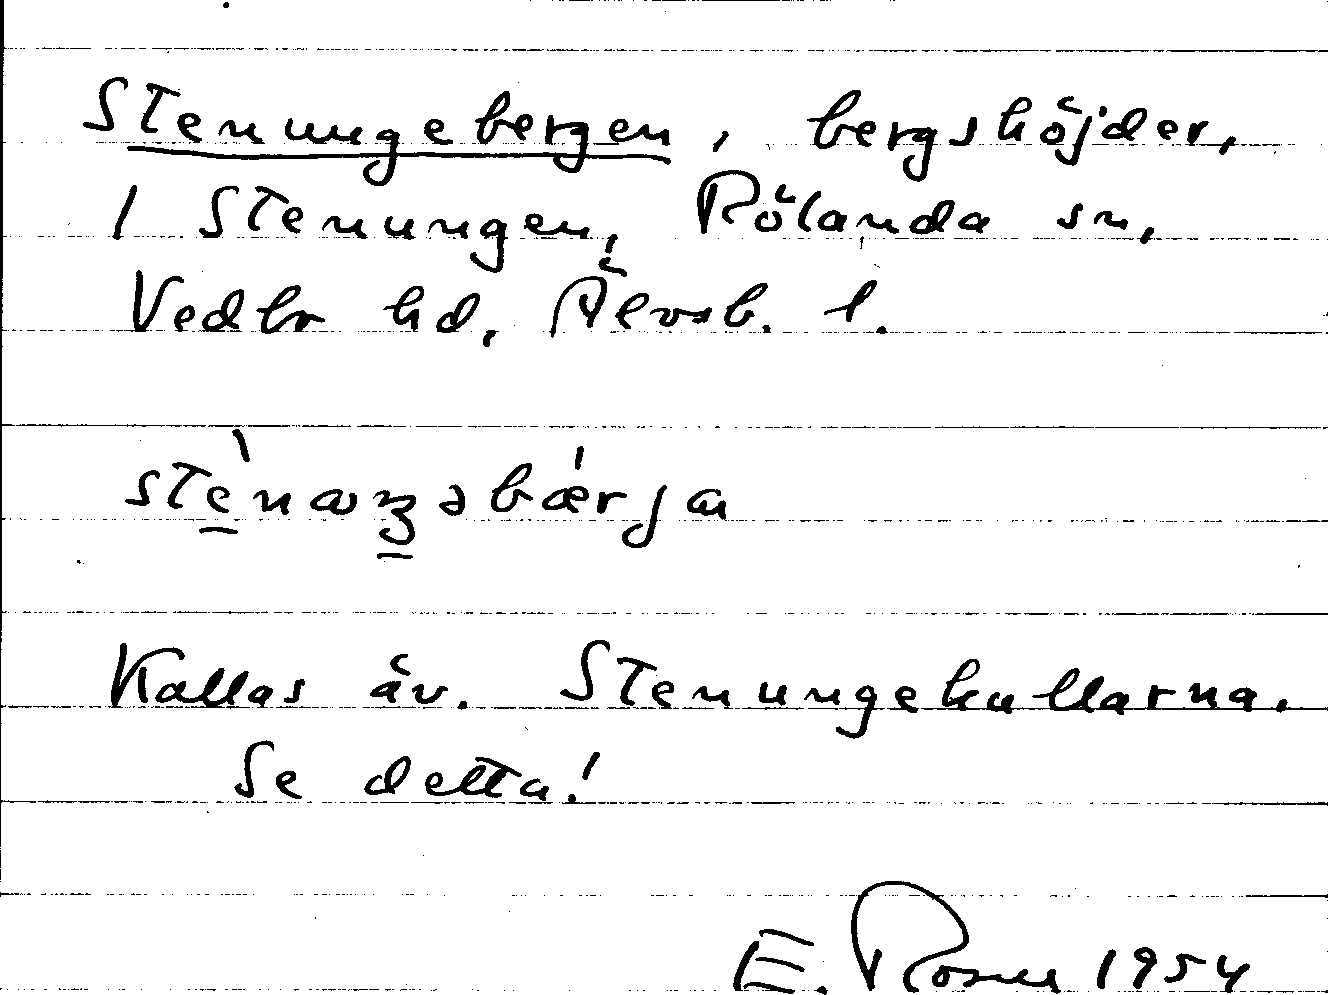 Stenungebergen, bergshöjder,
/ Stenungen, Rölanda sn,
Vedbo hd, Älvsb. l.
Kallas äv. Stenungekullarna.
Se detta!
E. Rosell 1954